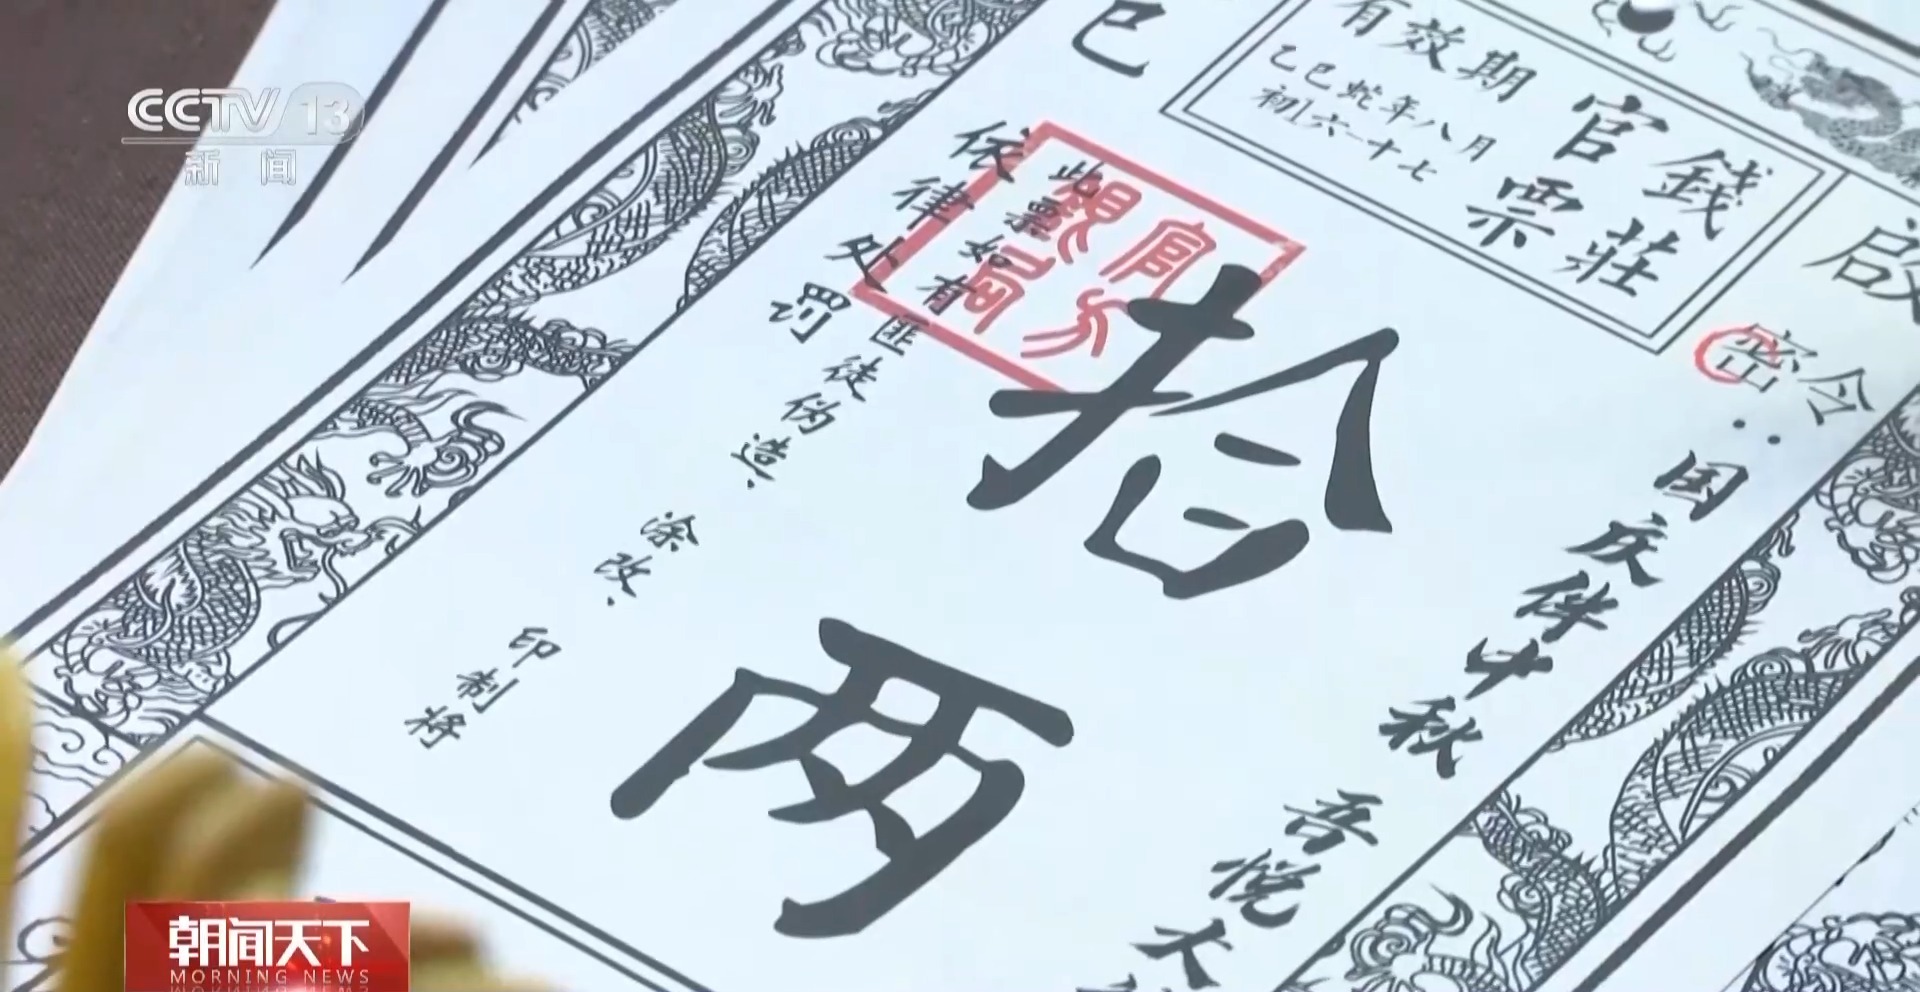 CCTV 13
新闻
巳
有效期
乙巳蛇年八月
初六—十七
官票
钱莊
啟
密令：国庆伴中秋
吾悦大
拾两
此票如有匪徒伪造、涂改、印制将
依律处罚
朝闻天下
MORNING NEWS